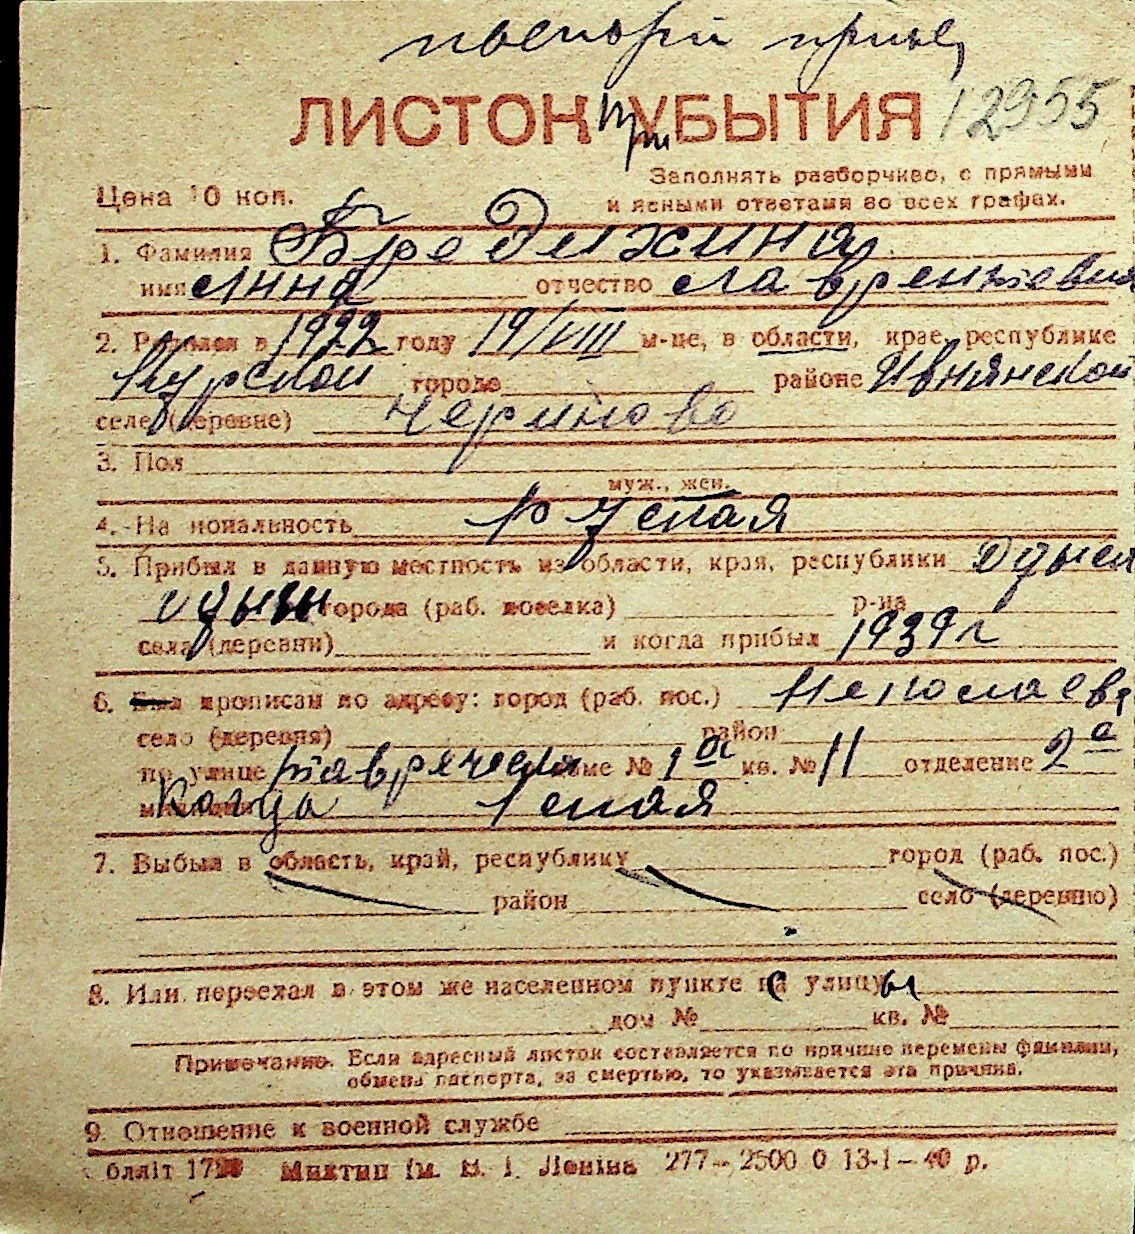 ЛИСТОК УБЫТИЯ 12955
При
Заполнять разборчиво, с прямыми
Цена 10 коп. и ясными ответами во всех графах.
1. Фамилия Бределихина
имя Анна отчество Лаврентьевна
2. Родился в 1922 году 19/VIII м-це, в области, крае, республике
Курской города районе Ивнянской
селе (деревне) Череново
3. Пол
муж., жен.
4. На иональность русская
5. Прибыл в данную местность из области, края, республики
города (раб. поселка) р-на
села (деревни) и когда прибыл 1939 г
6. Был прописан по адресу: город (раб. пос.)
село (деревня) район
по улице Таврическ доме № 1а кв. № 11 отделение 2а
милиции
7. Выбыл в область, край, республику город (раб. пос.)
район село (деревню)
8. Или переехал в этом же населенном пункте с улицы
дом № кв. №
Примечание. Если адресный листок составляется по причине перемены фамилии,
обмена паспорта, за смертью, то указывается эта причина.
9. Отношение к военной службе
блліт Миктип ім. В. І. Леніна 277—2500 0 13-1—40 р.